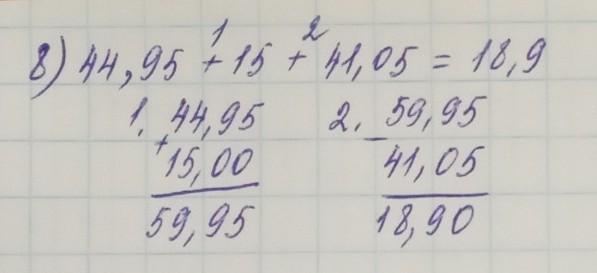 1 2
8) 44,95 + 15 + 41,05 = 18,9
1. 44,95 2. 59,95
+ -
15,00 41,05
59,95 18,90